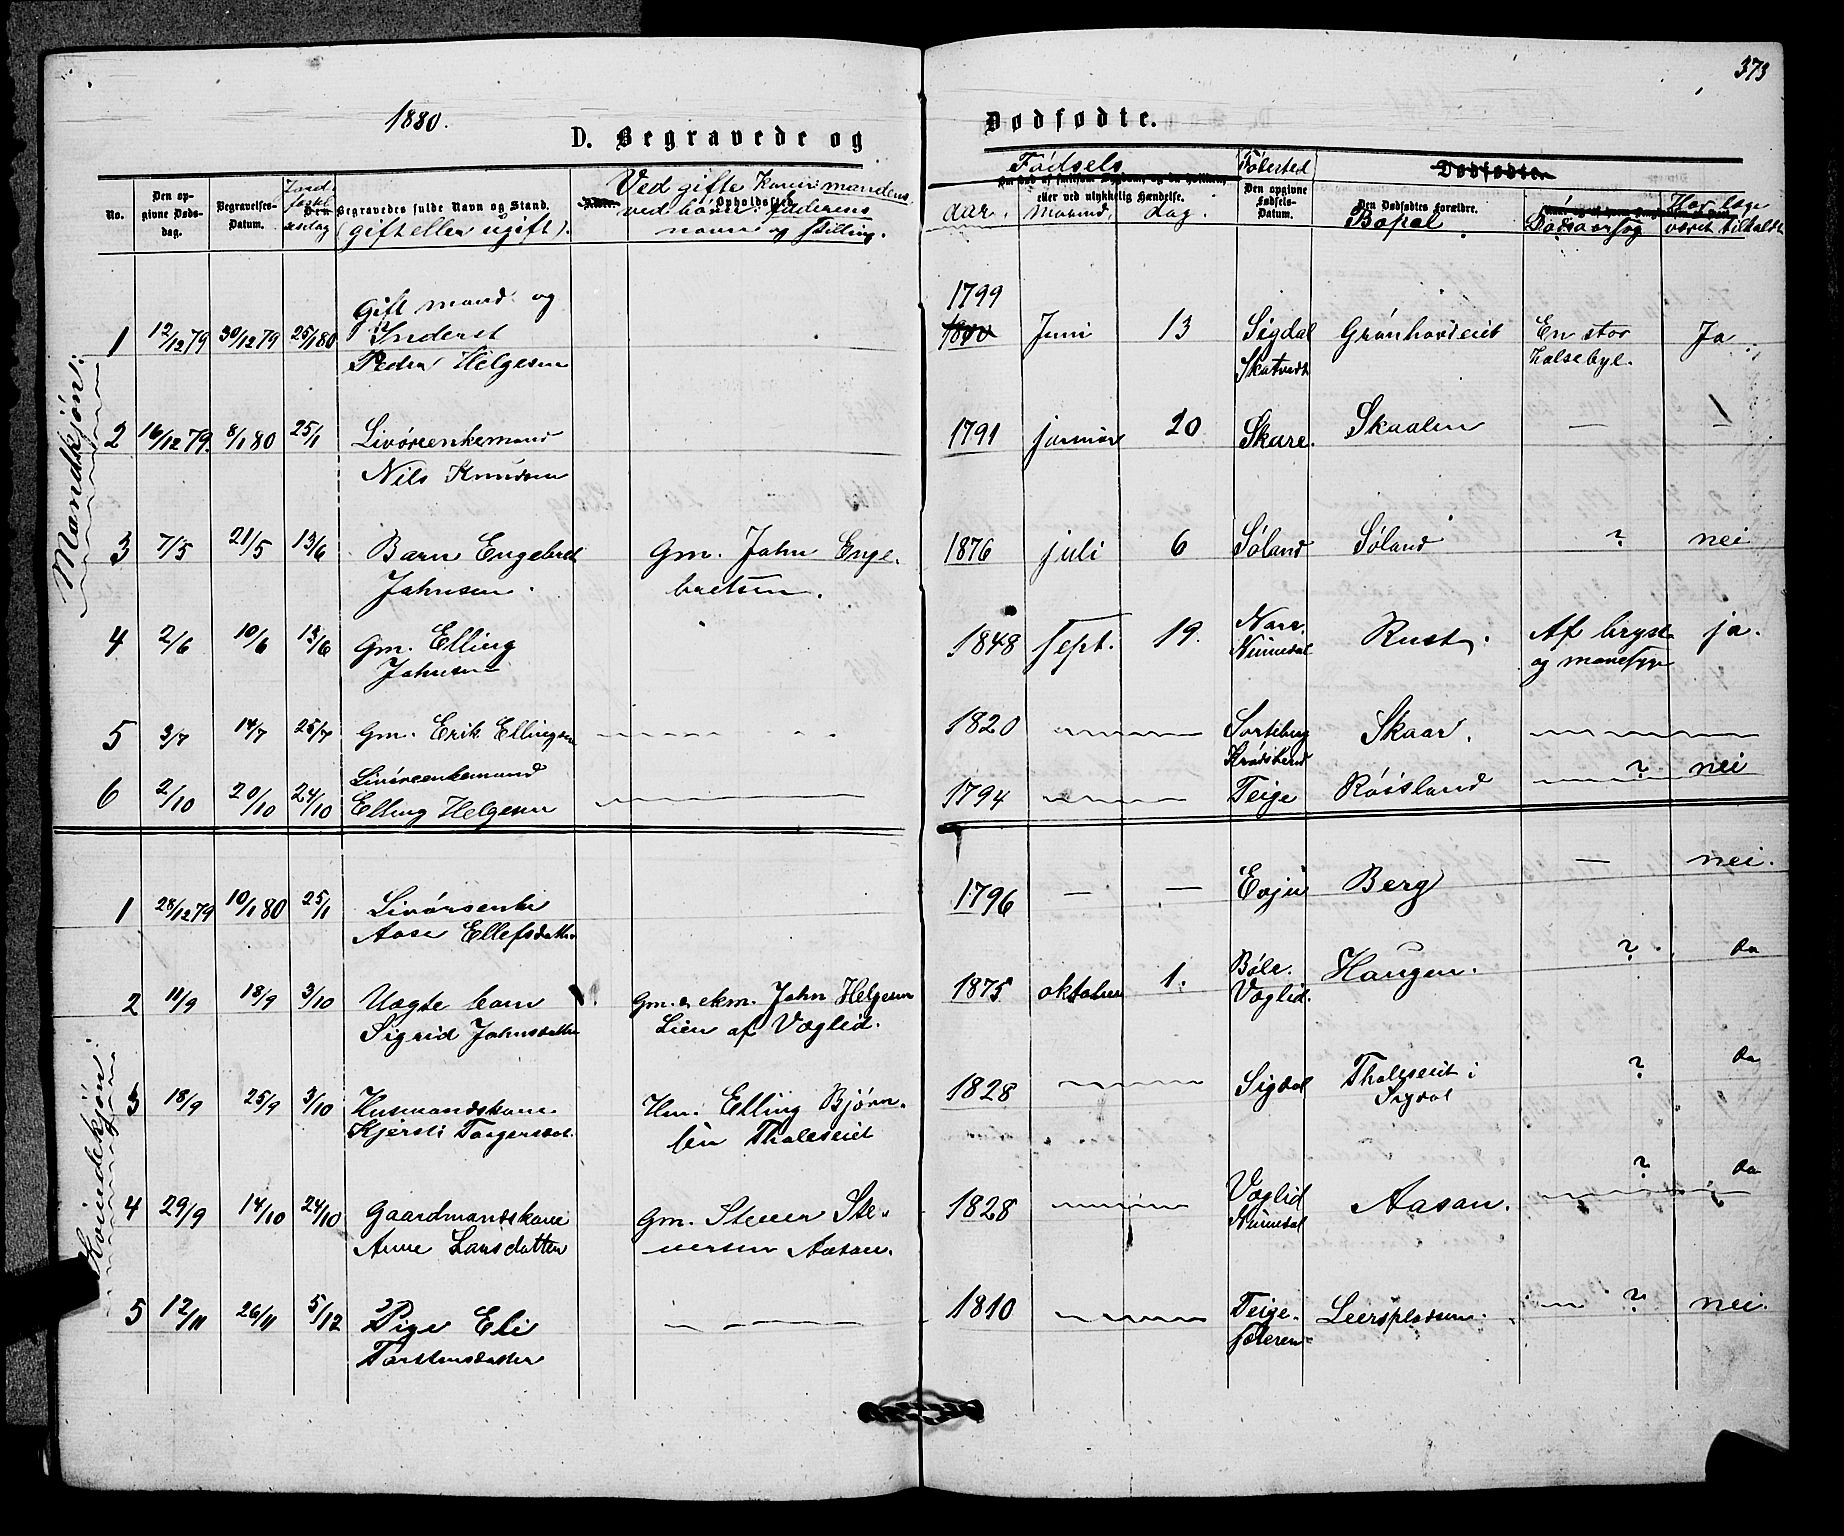 373
1880.
D. Begravede og Dødfødte.
No.
Den opgivne Dødsdag.
Begravelses-Datum.
Den Begravedes fulde Navn og Stand.
(gift eller ugift).
Ved gifte Koner mandens
ved børn faderens
navn og stilling.
Opholdssted
Fødsels
eller ved ulykkelig Hændelse.
aar. Maaned. dag.
Fødested
Den opgivne Fødsels-Datum.
Dødfødte.
Den Dødfødtes Forældre.
Bopæl
Dødsaarsag
Har læge
været tilkaldt
Mandkjøn:
1 12/12 79 30/12 79 25/1 80 Gift mand og Inderst Peder Helgesen 1799 1800 Juni 13 Sigdal Skatvedt Grønhovdeiet En stor halsebyl. Ja
2 16/12 79. 8/1 80 25/1 Livøreenkemand Nils Knudsen 1791 januar 20 Skare. Skaalen — —
3 7/5 21/5 13/6 Barn Engebret Johnsen. Gm. John Engebretsen. 1876 juli 6 Søland Søland ? nei
4 2/6 10/6 13/6 Gm. Elling Johnsen 1848 Sept. 19. Nore. Numedal Rust. Af bryst og mavesyge ja.
5 3/7 14/7 25/7 Gm. Erik Ellingsen 1820 Sorteberg Krødsherred Skaar.
6 2/10 20/10 24/10 Livøreenkemand Elling Helgesen 1794 Teige Røisland ? nei
Kvindekjøn:
1 28/12 79 10/1 80 25/1 Livørsenke Aase Ellefsdatter 1796 — — Evju Berg — nei.
2 11/9 18/9 3/10 Uægte barn Sigrid Johnsdatter Gm. ekm. John Helgesen Lien af Væglid. 1875 oktober 1. Væglid. Haugen. ? Do
3 18/9 25/9 3/10 Husmandskone Kjersti Torgersdat. Hm. Elling Bjørnsen Tholeseiet 1828 Sigdal Tholeseiet i Sigdal ? Do
4 29/9 14/10 24/10 Gaardmandskone Anne Larsdatter Gm. Stener Stenersen Aasan. 1828 Væglid Numedal Aasan. ? Do
5 12/11 26/11 5/12 Pige Eli Torstensdatter 1810 Teige- Leerspladsen. ? nei.